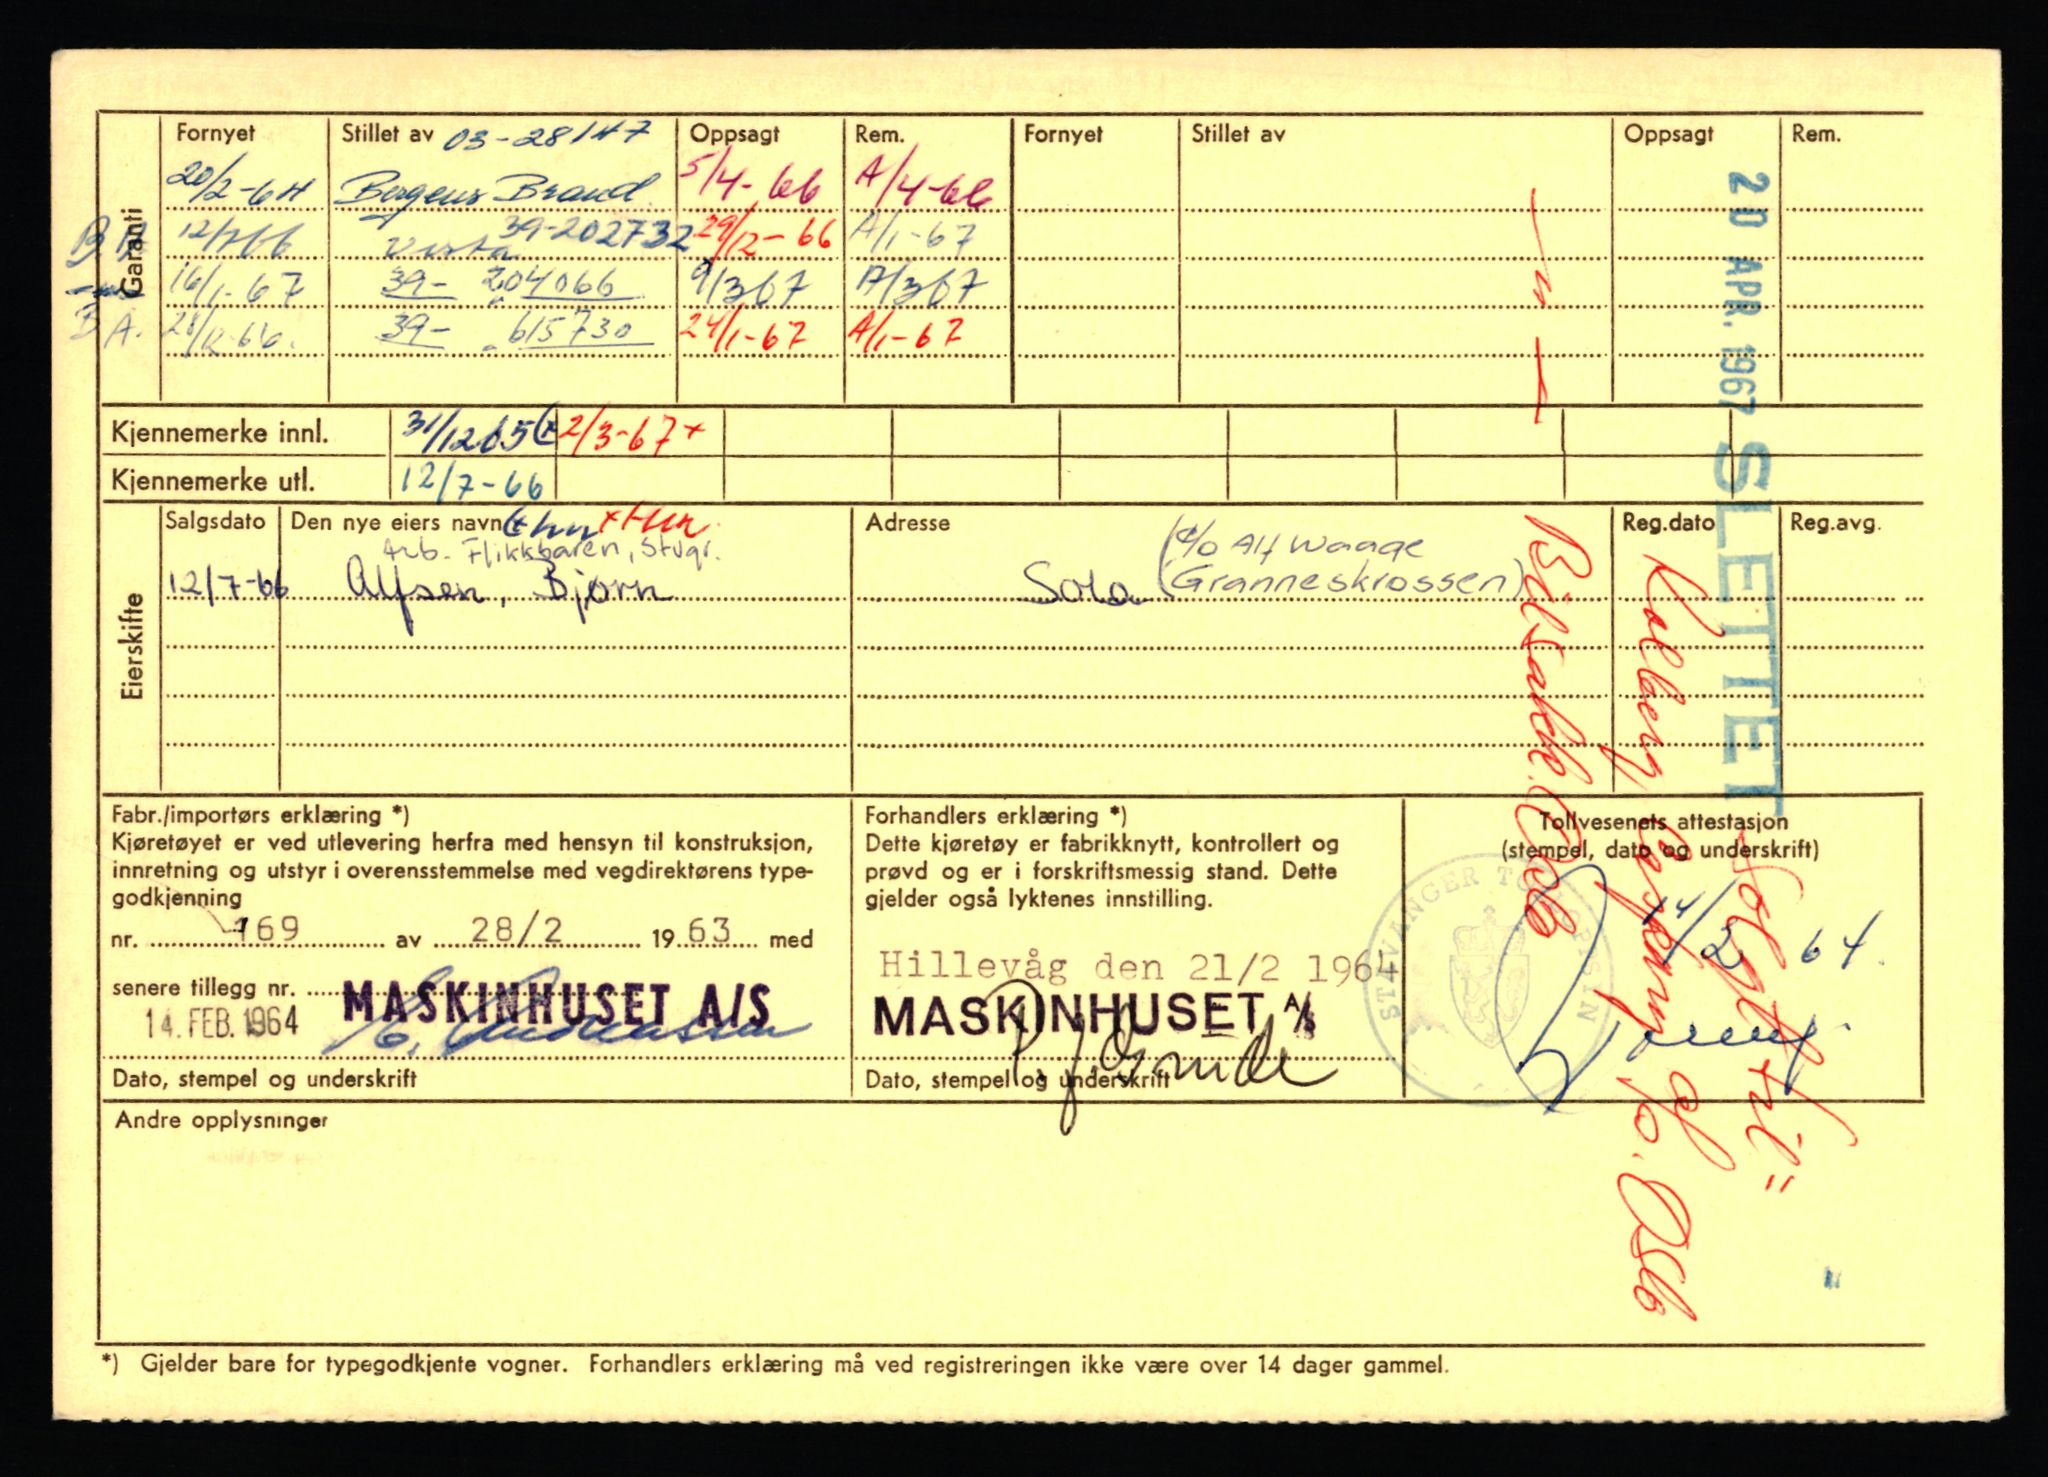 Garanti
Fornyet Stillet av 03-28147 Oppsagt Rem. Fornyet Stillet av Oppsagt Rem.
20/2-64 Bergens Brand 5/4-66 A/4-66
12/7-66 Vesta 39-202732 29/12-66 A/1-67
16/1-67 39- 204066 9/3 67 A/3 67
B A. 28/12-66. 39- 615730 24/1-67 A/1-67
Kjennemerke innl. 31/12 65 2/3-67 +
Kjennemerke utl. 12/7-66
Eierskifte
Salgsdato Den nye eiers navn Adresse Reg.dato Reg.avg.
Arb. Flikkbaren, Stvgr. (c/o Alf Waage
12/7-66 Alfsen, Bjørn Sola Granneskrossen)
20 APR. 1967 SLETTET
Solgt til
Kolberg, Caspary of
c/o. Oslo
Fabr./importørs erklæring *)
Kjøretøyet er ved utlevering herfra med hensyn til konstruksjon,
innretning og utstyr i overensstemmelse med vegdirektørens type-
godkjenning
nr. 169 av 28/2 1963 med
senere tillegg nr.
14. FEB. 1964 MASKINHUSET A/S
Dato, stempel og underskrift
Forhandlers erklæring *)
Dette kjøretøy er fabrikknytt, kontrollert og
prøvd og er i forskriftsmessig stand. Dette
gjelder også lyktenes innstilling.
Hillevåg den 21/2 1964
MASKINHUSET A/S
Dato, stempel og underskrift
Tollvesenets attestasjon
(stempel, dato og underskrift)
STAVANGER
14/2 64.
Andre opplysninger
*) Gjelder bare for typegodkjente vogner. Forhandlers erklæring må ved registreringen ikke være over 14 dager gammel.